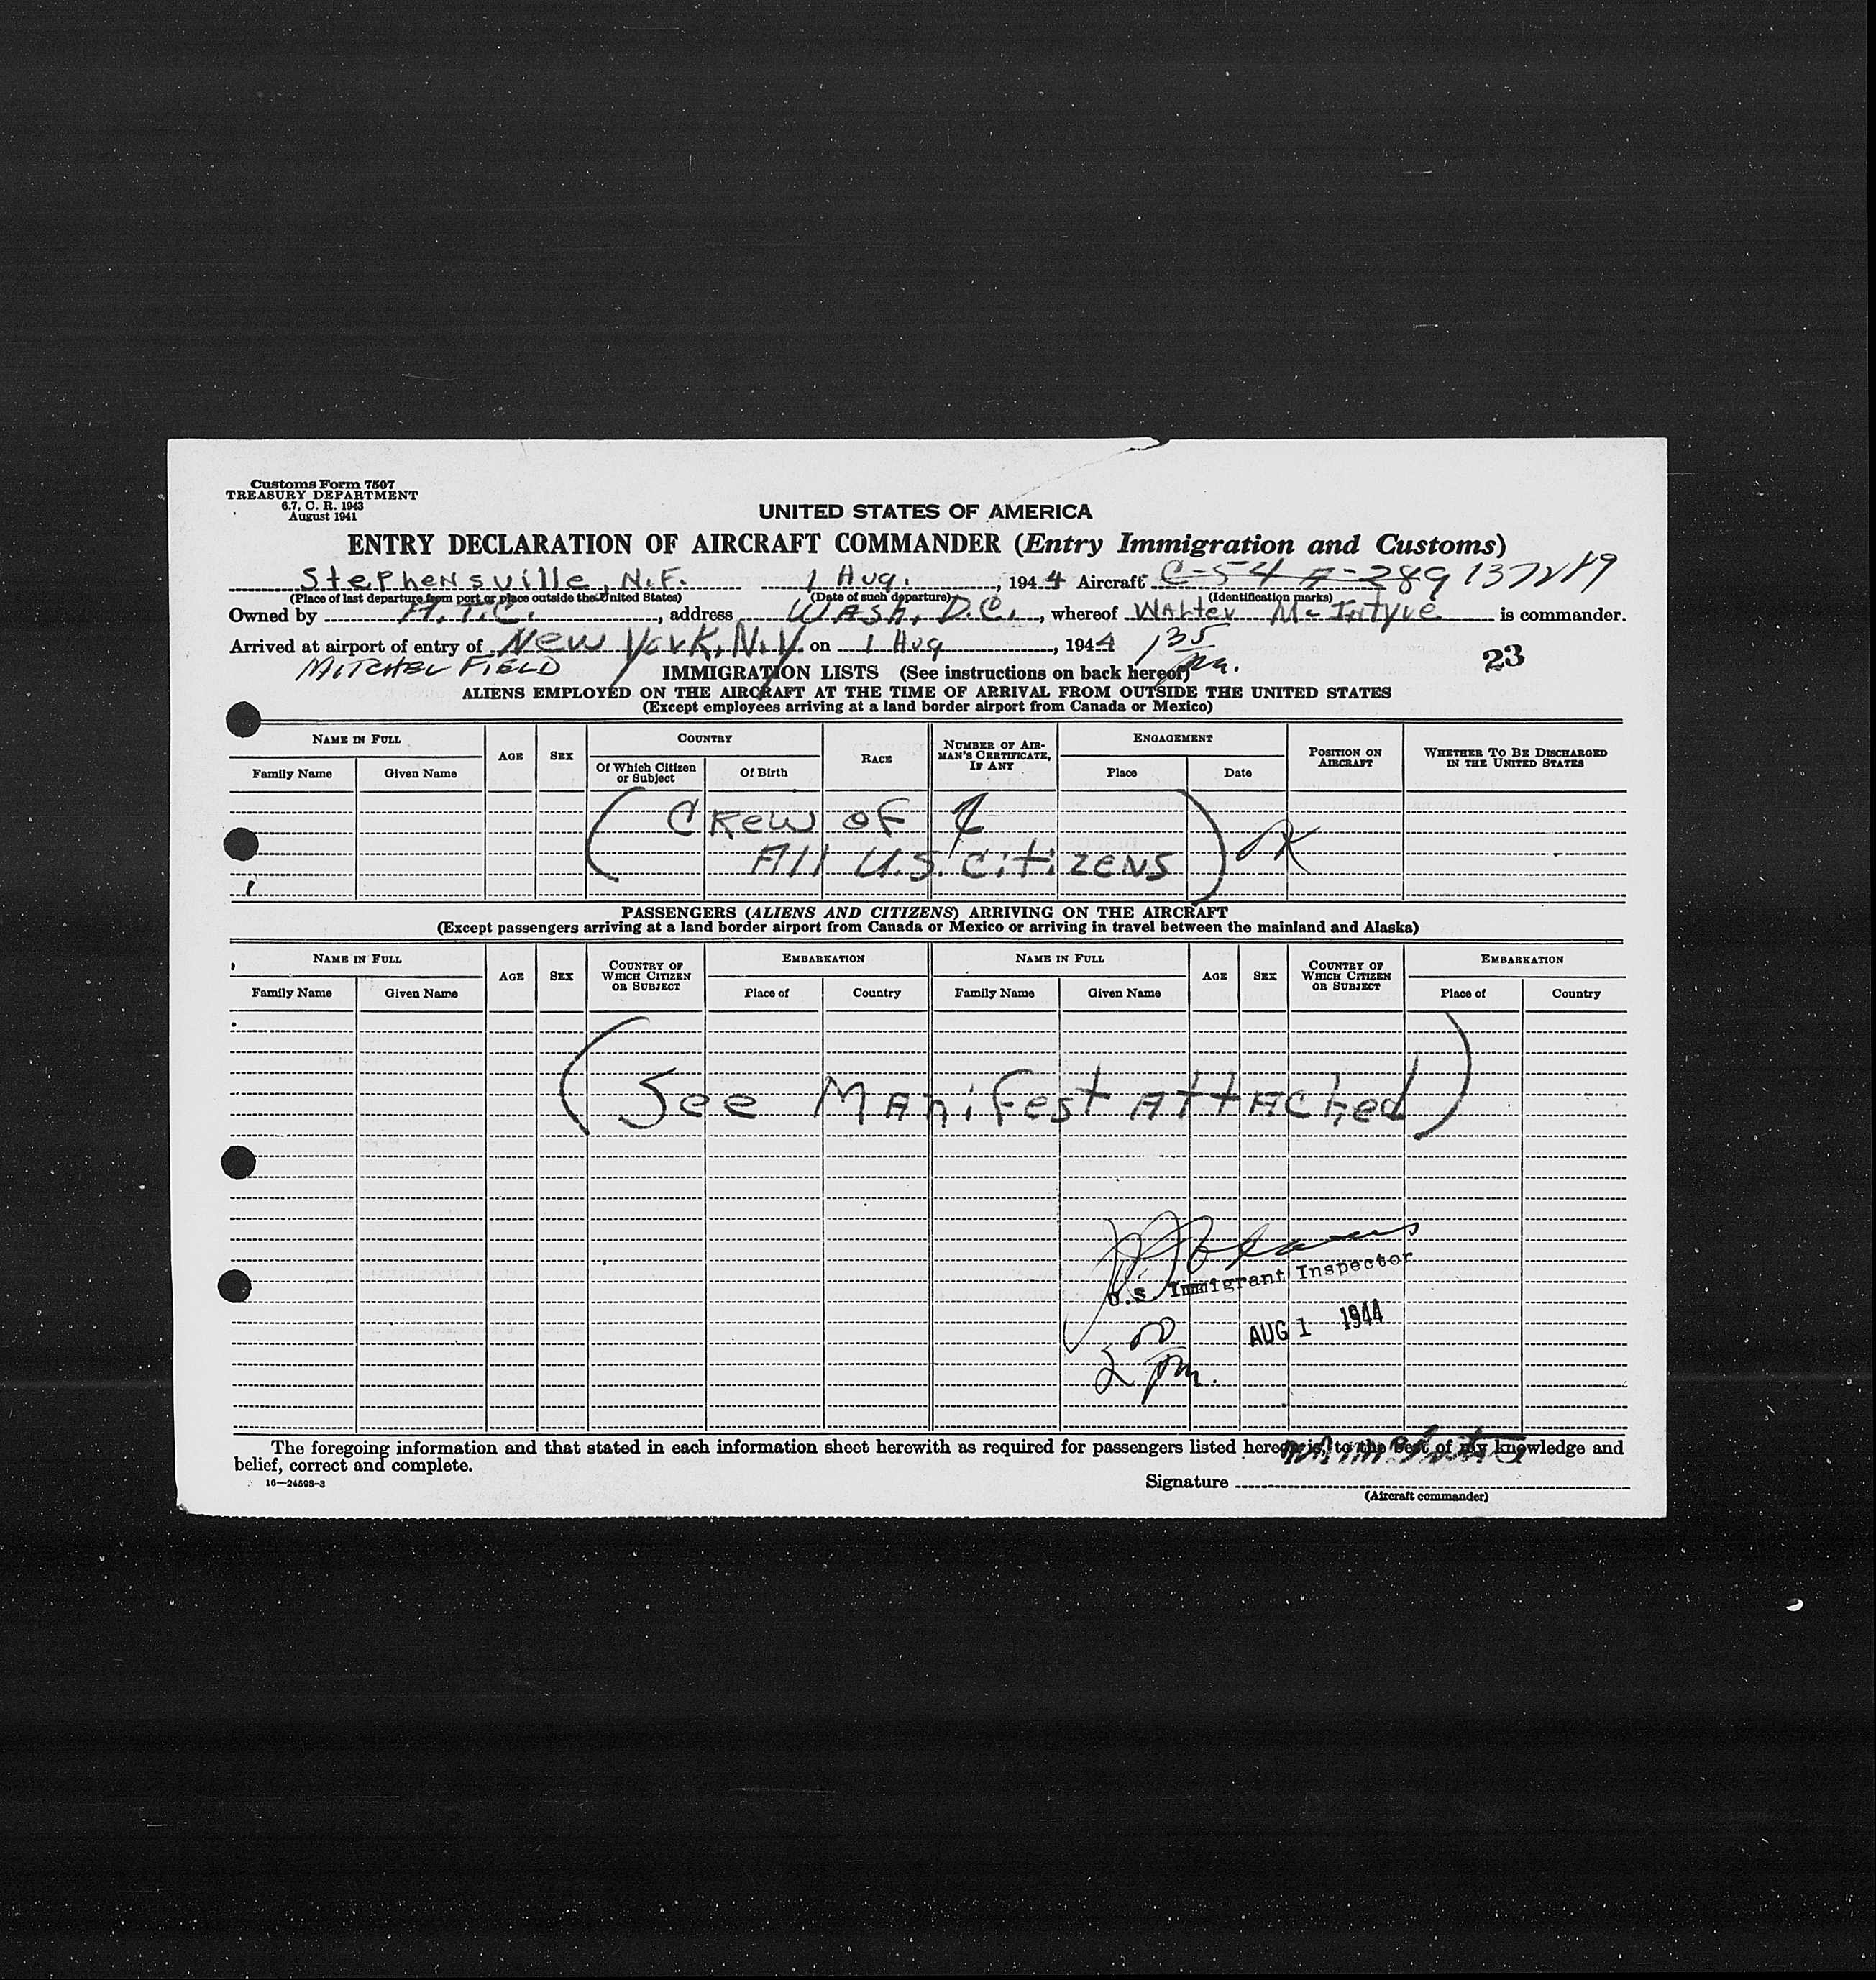 Customs Form 7507
TREASURY DEPARTMENT
6.7, C. R. 1943
August 1941
UNITED STATES OF AMERICA
ENTRY DECLARATION OF AIRCRAFT COMMANDER (Entry Immigration and Customs)
Stephensville, N.F. 1 Aug., 1944 Aircraft C-54 A-289 137289
(Place of last departure from port or place outside the United States) (Date of such departure) (Identification marks)
Owned by A.T.C., address Wash. D.C., whereof Walter McIntyre is commander.
Arrived at airport of entry of New York, N.Y. on 1 Aug, 1944 1 35 pm.
MITCHEL FIELD
23
IMMIGRATION LISTS (See instructions on back hereof)
ALIENS EMPLOYED ON THE AIRCRAFT AT THE TIME OF ARRIVAL FROM OUTSIDE THE UNITED STATES
(Except employees arriving at a land border airport from Canada or Mexico)
NAME IN FULL AGE SEX COUNTRY RACE NUMBER OF AIRMAN'S CERTIFICATE, IF ANY ENGAGEMENT POSITION ON AIRCRAFT WHETHER TO BE DISCHARGED IN THE UNITED STATES
Family Name Given Name Of Which Citizen or Subject Of Birth Place Date
(Crew of
All U.S. Citizens) OK
PASSENGERS (ALIENS AND CITIZENS) ARRIVING ON THE AIRCRAFT
(Except passengers arriving at a land border airport from Canada or Mexico or arriving in travel between the mainland and Alaska)
NAME IN FULL AGE SEX COUNTRY OF WHICH CITIZEN OR SUBJECT EMBARKATION NAME IN FULL AGE SEX COUNTRY OF WHICH CITIZEN OR SUBJECT EMBARKATION
Family Name Given Name Place of Country Family Name Given Name Place of Country
(See Manifest Attached)
U.S. Immigrant Inspector
AUG 1 1944
2 00 pm.
The foregoing information and that stated in each information sheet herewith as required for passengers listed hereon is, to the best of my knowledge and
belief, correct and complete.
16—24598-3
Signature
(Aircraft commander)